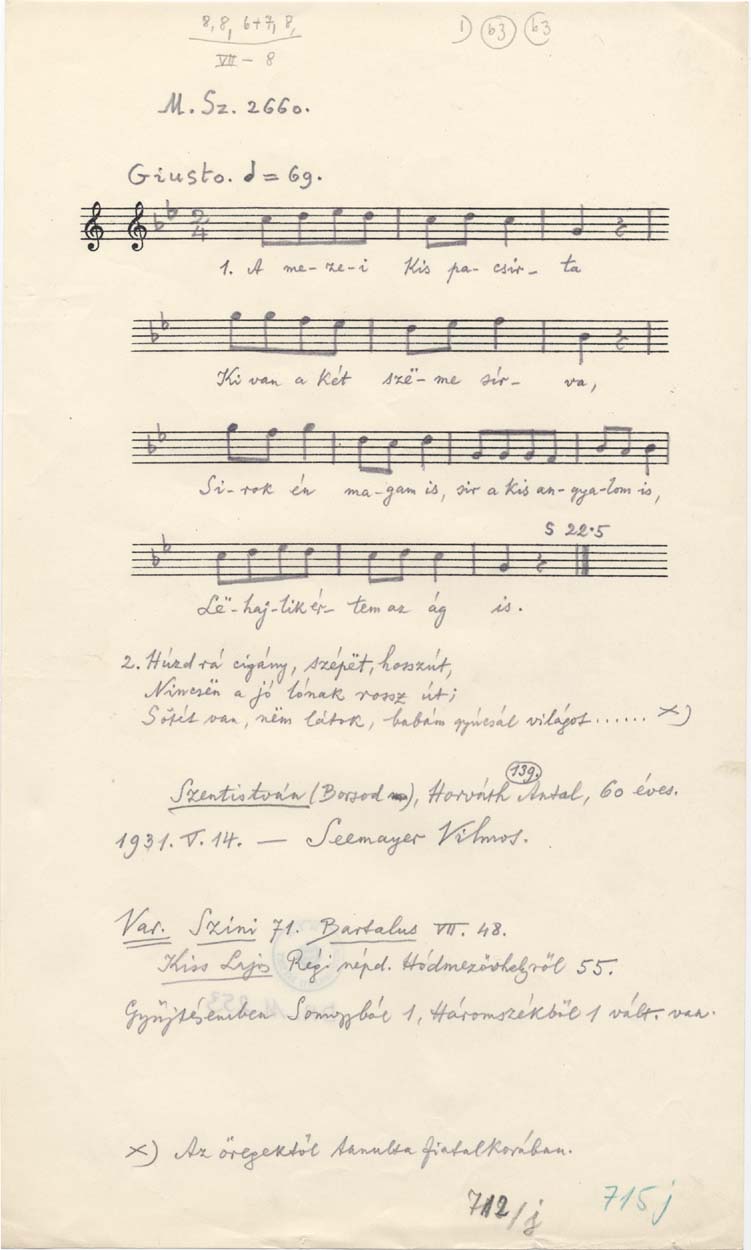 8, 8, 6+7, 8,
VII – 8
1) (b3) (b3
M. Sz. 2660.
Giusto. = 69.
2/4
1. A me- ze- i Kis pa- csir- ta
Ki van a két szë- me sír- va,
Si- rok én ma-gam is, sir a kis an- gya-lom is,
S 22·5
Lë- haj- lik ér- tem az ág is.
2. Húzd rá cigány, szépët, hosszút,
Nincsën a jó lónak rossz út;
Sötét van, nëm látok, babám gyúcsál világot...... x)
139.
Szentistván (Borsod m), Horváth Antal, 60 éves.
1931. V. 14. — Seemayer Vilmos.
Var. Szini 71. Bartalus VII. 48.
Kiss Lajos Régi népd. Hódmezővhelyről 55.
Gyűjtésemben Somogyból 1, Háromszékből 1 vált. van.
x) Az öregektől tanulta fiatalkorában.
712/j 715 j